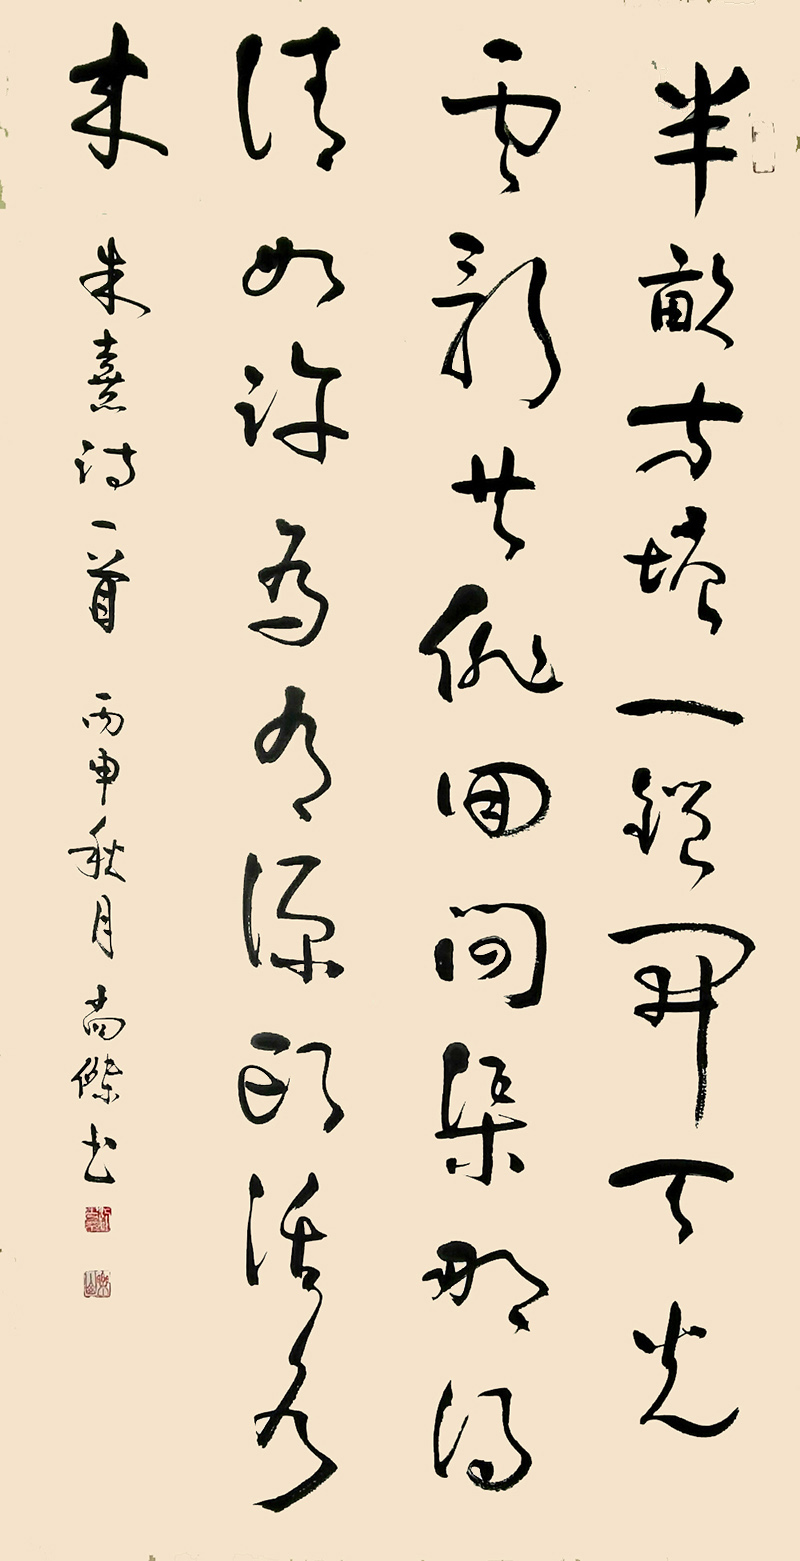 半畝方塘一鑑開天光
雲影共徘徊問渠那得
清如許為有源頭活水
来 朱熹詩一首 丙申秋月 尚傑书